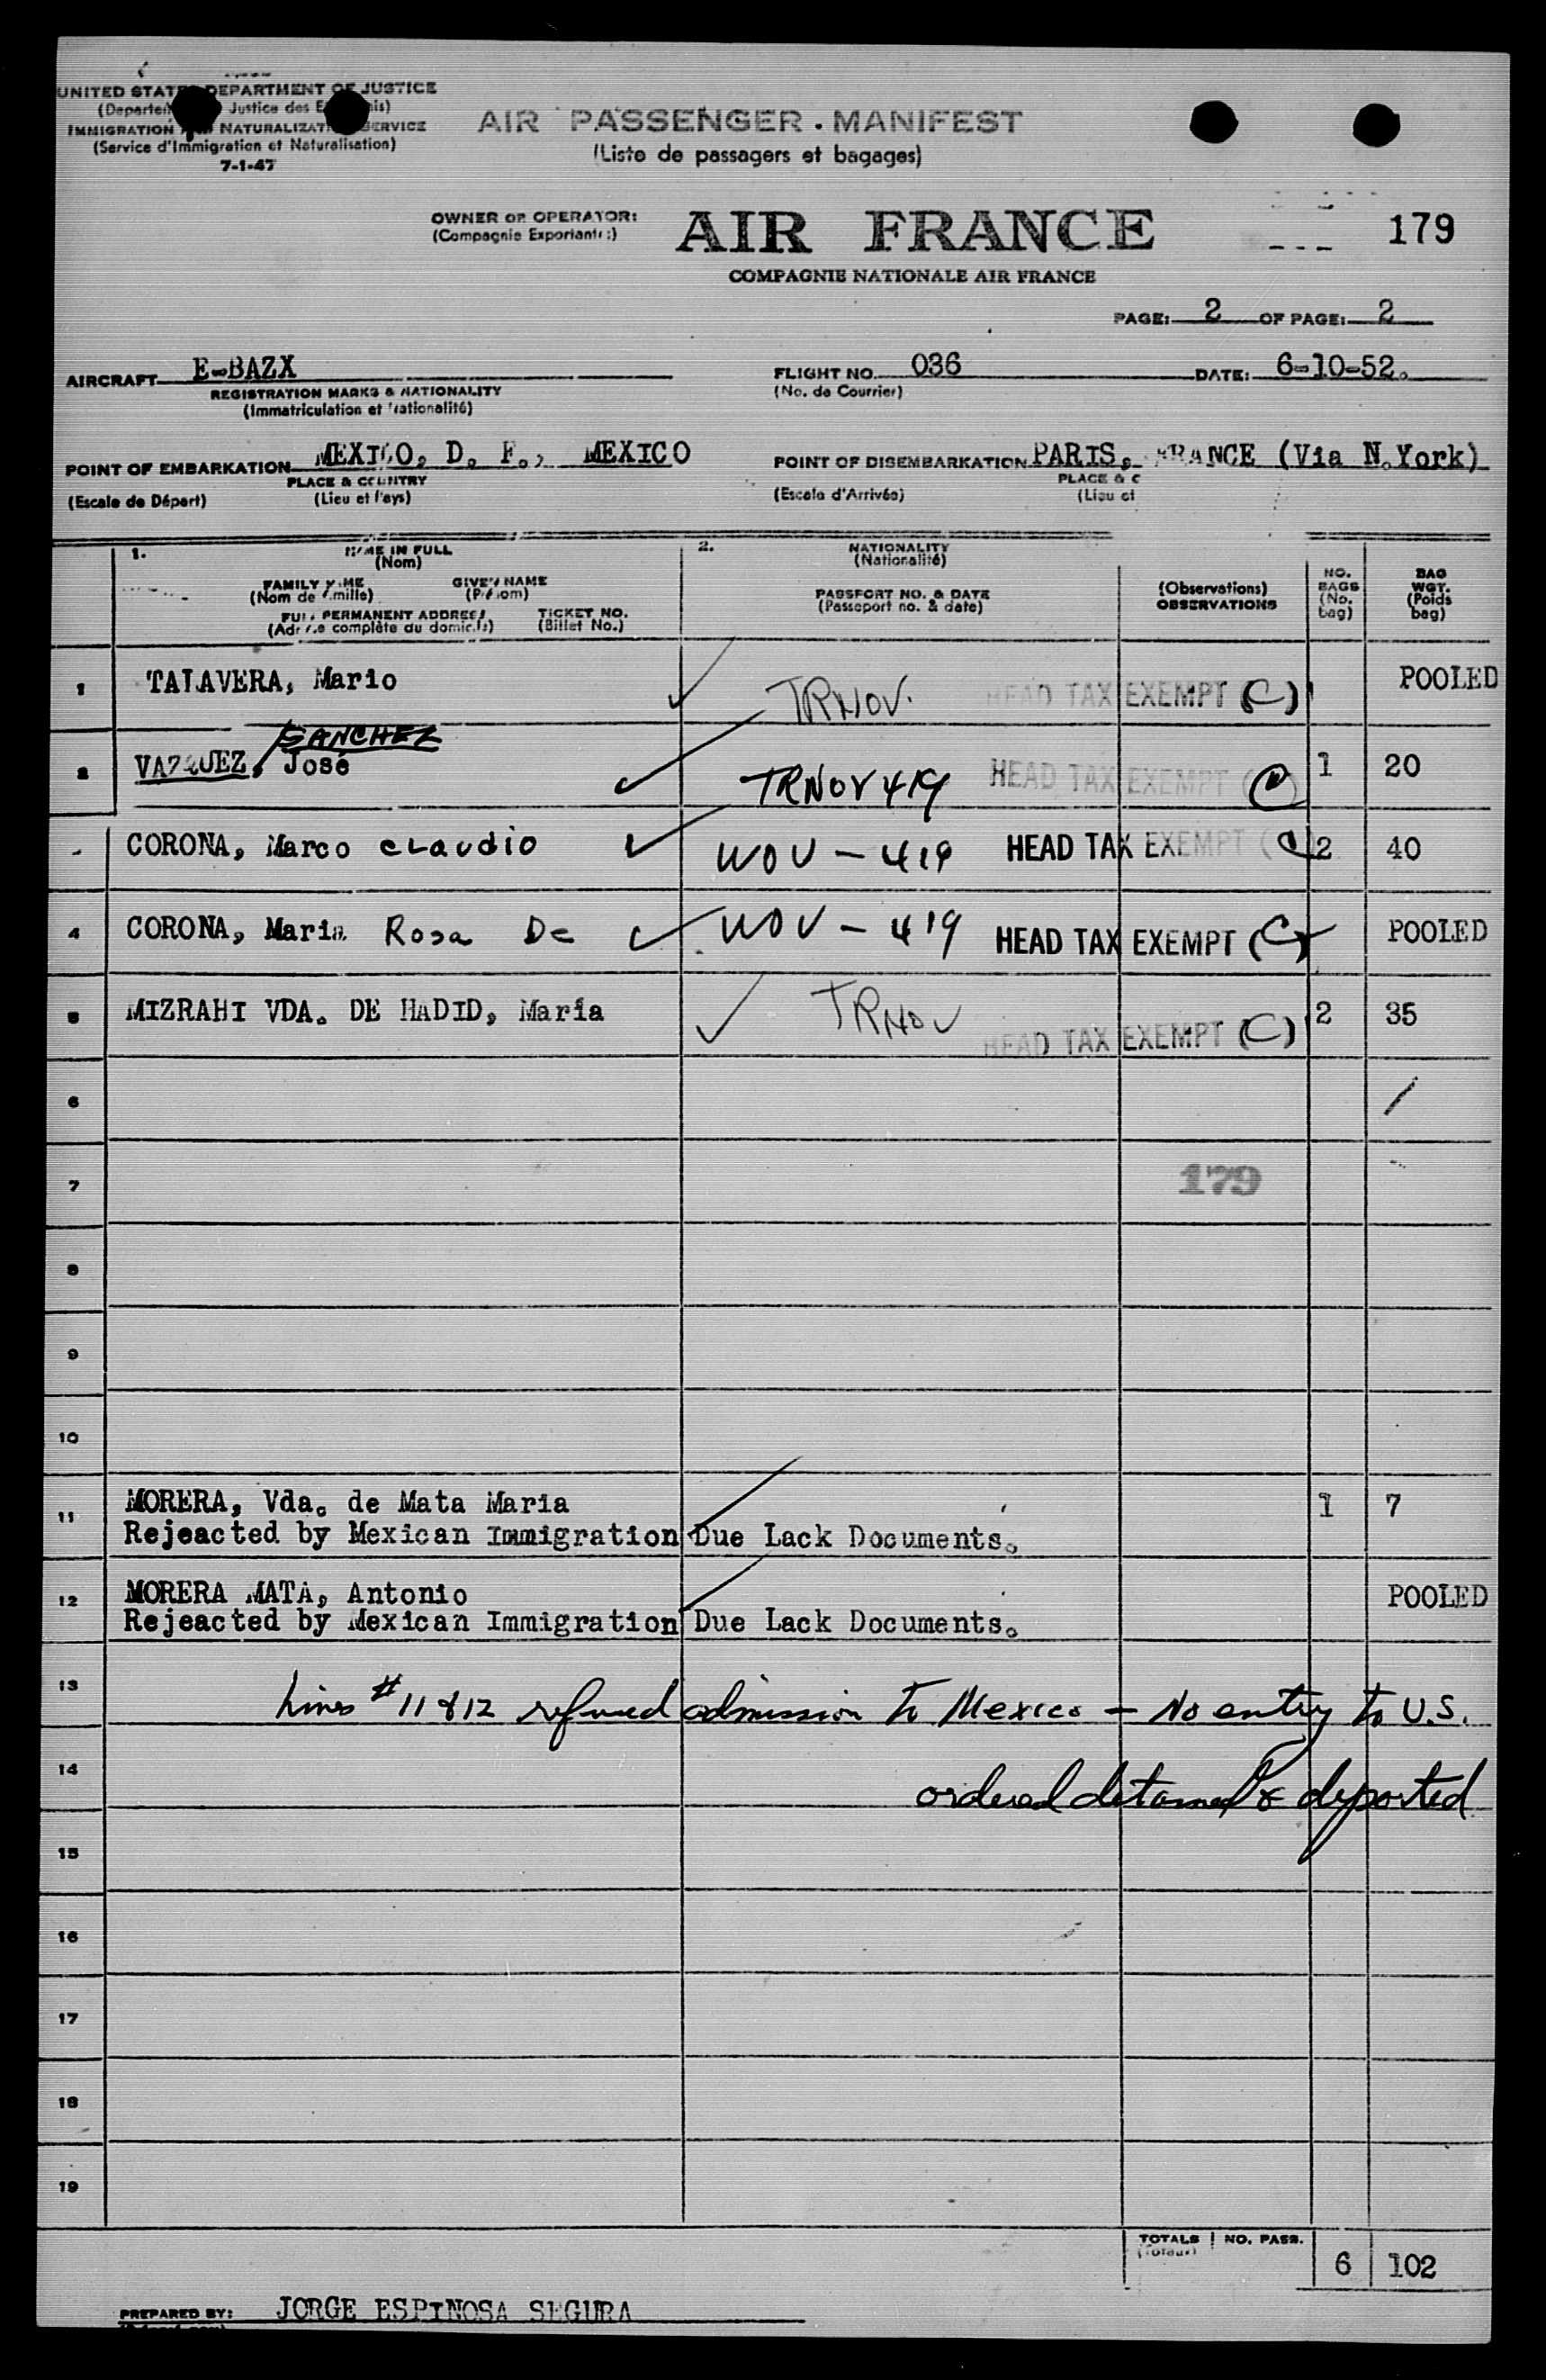 UNITED STATES DEPARTMENT OF JUSTICE
Justice des
IMMIGRATION NATURALIZATION SERVICE
(Service d'Immigration et Naturalisation)
7-1-47
AIR PASSENGER MANIFEST
(Liste de passagers et bagages)
OWNER OR OPERATOR:
(Compagnie Exploitante:)
AIR FRANCE
COMPAGNIE NATIONALE AIR FRANCE
179
PAGE: 2 OF PAGE: 2
AIRCRAFT E-BAZX FLIGHT NO. 036 DATE: 6-10-52.
REGISTRATION MARKS & NATIONALITY (No. de Courrier)
(Immatriculation et Nationalité)
POINT OF EMBARKATION MEXICO, D. F., MEXICO POINT OF DISEMBARKATION PARIS, FRANCE (Via N.York)
PLACE & COUNTRY PLACE & C
(Escale de Départ) (Lieu et Pays) (Escale d'Arrivée) (Lieu et
1. NAME IN FULL 2. NATIONALITY
(Nom) (Nationalité)
FAMILY NAME GIVEN NAME
(Nom de famille) (Prénom)
FULL PERMANENT ADDRESS TICKET NO.
(Adresse complète du domicile) (Billet No.)
PASSPORT NO. & DATE
(Passeport no. & date)
(Observations)
OBSERVATIONS
NO. BAGS (No. bag)
BAG WGT. (Poids bag)
1 TALAVERA, Mario TRNOV. HEAD TAX EXEMPT (C) POOLED
SANCHEZ
2 VAZQUEZ, José TRNOV 419 HEAD TAX EXEMPT 1 20
CORONA, Marco claudio WOV - 419 HEAD TAX EXEMPT 2 40
4 CORONA, Maria Rosa De WOV - 419 HEAD TAX EXEMPT (C) POOLED
5 MIZRAHI VDA. DE HADID, María TRNOV HEAD TAX EXEMPT (C) 2 35
6
7 179
8
9
10
11 MORERA, Vda. de Mata Maria 1 7
Rejeacted by Mexican Immigration Due Lack Documents.
12 MORERA MATA, Antonio POOLED
Rejeacted by Mexican Immigration Due Lack Documents.
13 Lines #11 & 12 refused admission to Mexico - No entry to U.S.
14 ordered detained & deported
15
16
17
18
19
TOTALS NO. PASS. 6 102
(Totaux)
PREPARED BY: JORGE ESPINOSA SEGURA